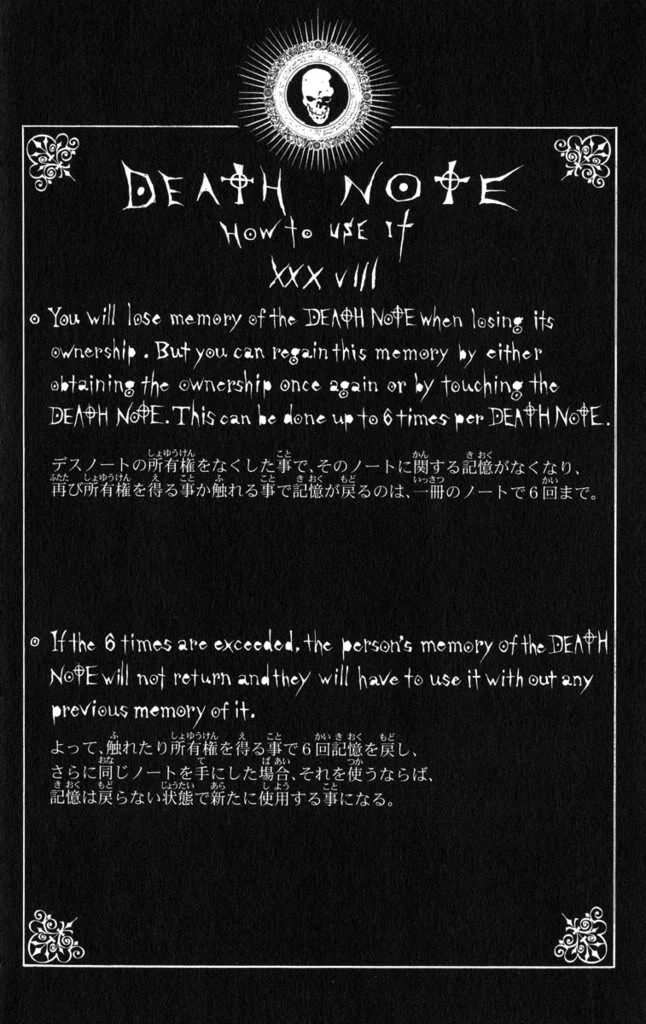 DEATH NOTE
HOW to USE It
XXX viii
You will lose memory of the DEATH NOTE when losing its
ownership. But you can regain this memory by either
obtaining the ownership once again or by touching the
DEATH NOTE. This can be done up to 6 times per DEATH NOTE.
デスノートの所有権をなくした事で、そのノートに関する記憶がなくなり、
再び所有権を得る事か触れる事で記憶が戻るのは、一冊のノートで6回まで。
If the 6 times are exceeded, the person's memory of the DEATH
NOTE will not return and they will have to use it with out any
previous memory of it.
よって、触れたり所有権を得る事で6回記憶を戻し、
さらに同じノートを手にした場合、それを使うならば、
記憶は戻らない状態で新たに使用する事になる。